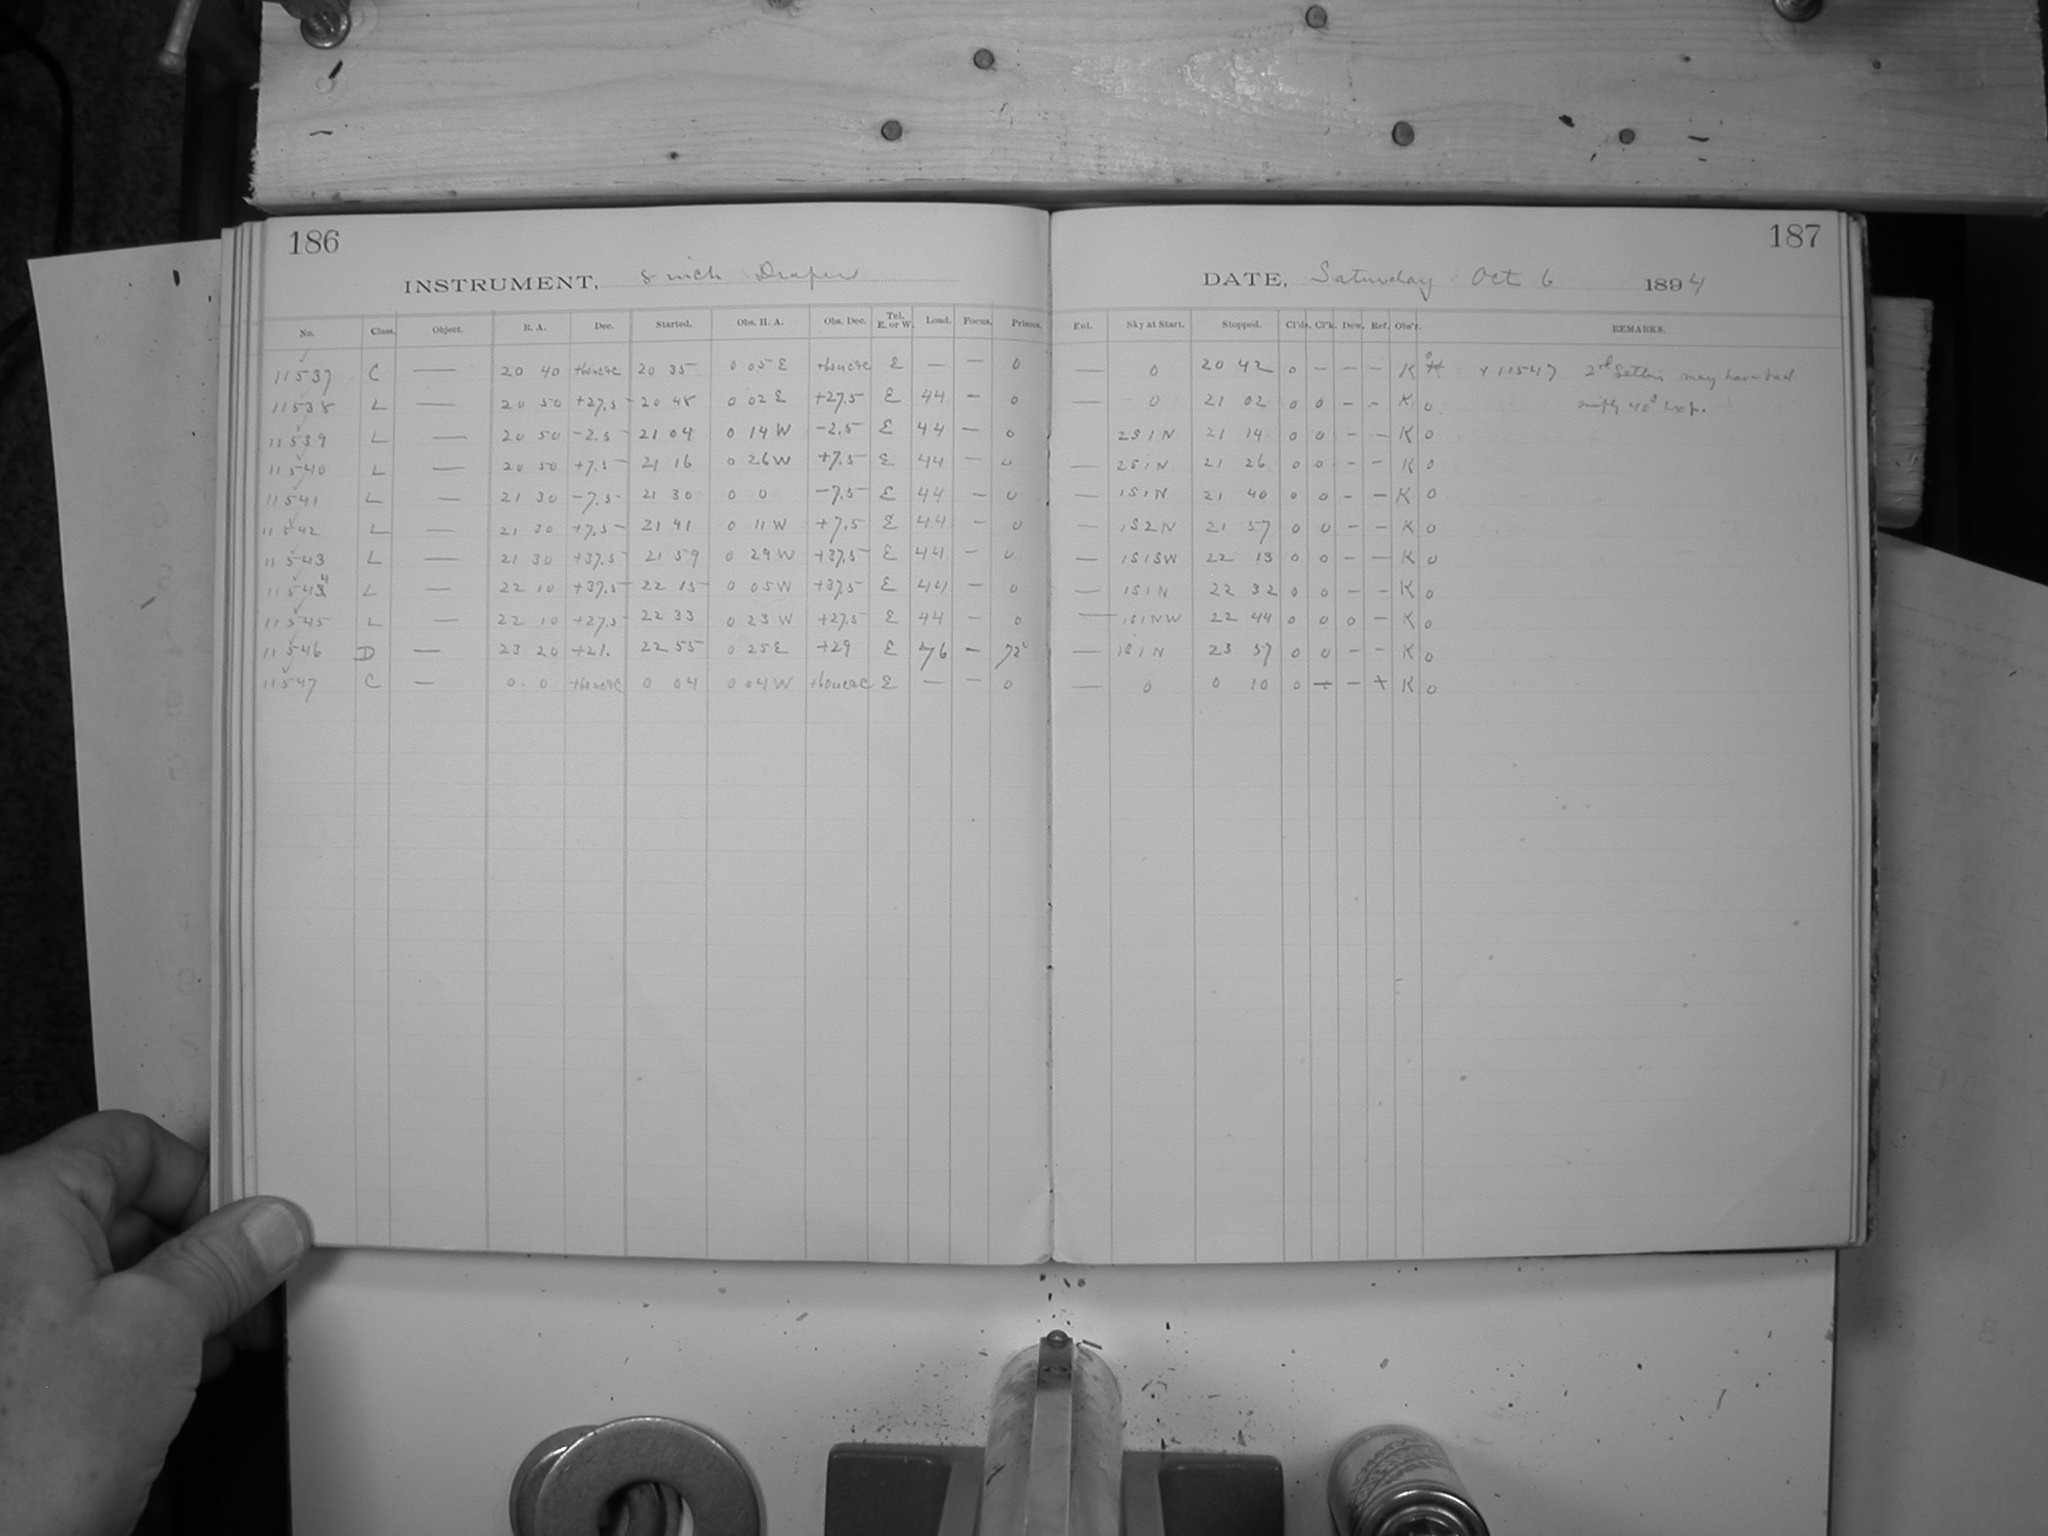 186
187
INSTRUMENT, 8 inch Draper
DATE, Saturday Oct 6 1894
No. Class. Object. R. A. Dec. Started. Obs. H. A. Obs. Dec. Tel. E. or W. Load. Focus. Prisms. Enl. Sky at Start. Stopped. Cl'ds. Cl'k. Dew. Ref. Obs'r. REMARKS.
11537 C — 20 40 20 35 0 05 E E — — 0 — 0 20 42 0 – – – K x 11547 2nd Setting may have had
11538 L — 20 50 +27.5 20 48 0 02 E +27.5 E 44 – 0 — 0 21 02 0 0 – – K 0 only 40s exp.
11539 L — 20 50 -2.5 21 04 0 14 W -2.5 E 44 – 0 2S1N 21 14 0 0 – – K 0
11540 L — 20 50 +7.5 21 16 0 26 W +7.5 E 44 – 0 — 2S1N 21 26 0 0 – – K 0
11541 L — 21 30 -7.5 21 30 0 0 -7.5 E 44 – 0 — 1S1N 21 40 0 0 – – K 0
11542 L — 21 30 +7.5 21 41 0 11 W +7.5 E 44 – 0 — 1S2N 21 57 0 0 – – K 0
11543 L — 21 30 +37.5 21 59 0 29 W +37.5 E 44 – 0 — 1S1SW 22 13 0 0 – – K 0
11544 L — 22 10 +37.5 22 15 0 05 W +37.5 E 44 – 0 — 1S1N 22 32 0 0 – – K 0
11545 L — 22 10 +27.5 22 33 0 23 W +27.5 E 44 – 0 — 1S1NW 22 44 0 0 0 – K 0
11546 D — 23 20 +21. 22 55 0 25 E +29 E 76 – — 1S1N 23 57 0 0 – – K 0
11547 C — 0 0 0 04 0 04 W E — — 0 — 0 0 10 0 – + K 0